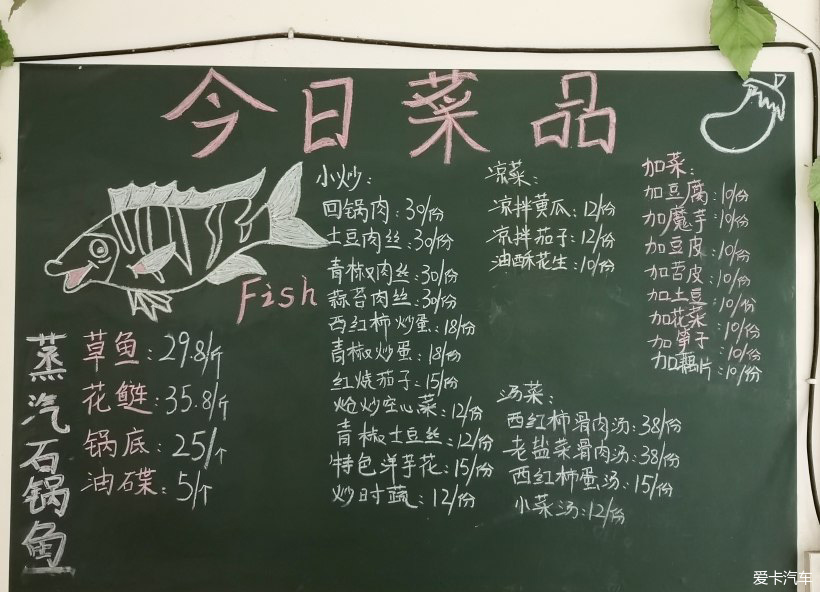 今日菜品
Fish
蒸汽石锅鱼
草鱼：29.8/斤
花鲢：35.8/斤
锅底：25/个
油碟：5/个
小炒：
回锅肉：30/份
土豆肉丝：30/份
青椒肉丝：30/份
蒜苔肉丝：30/份
西红柿炒蛋：18/份
青椒炒蛋：18/份
红烧茄子：15/份
炝炒空心菜：12/份
青椒土豆丝：12/份
特色洋芋花：15/份
炒时蔬：12/份
凉菜：
凉拌黄瓜：12/份
凉拌茄子：12/份
油酥花生：10/份
汤菜：
西红柿滑肉汤：38/份
老盐菜滑肉汤：38/份
西红柿蛋汤：15/份
小菜汤：12/份
加菜：
加豆腐：10/份
加魔芋：10/份
加豆皮：10/份
加苕皮：10/份
加土豆：10/份
加花菜：10/份
加笋子：10/份
加藕片：10/份
爱卡汽车